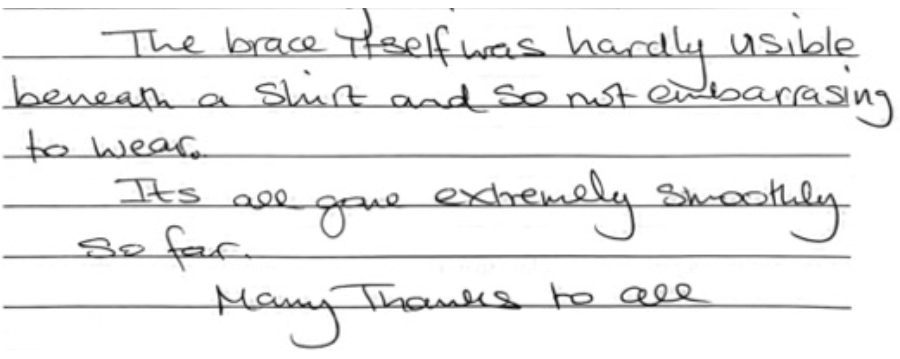 The brace itself was hardly visible
beneath a shirt and so not embarrasing
to wear.
Its all gone extremely smoothly
so far.
Many Thanks to all